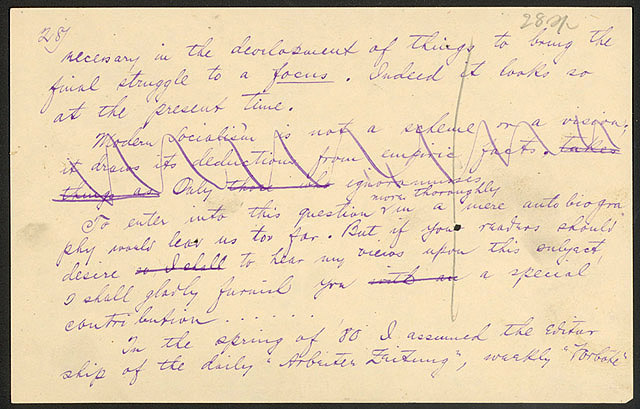 28)
28
necessary in the devolopment of things to bring the
final struggle to a focus. Indeed it looks so
at the present time.
Modern Socialism is not a scheme or a vision;
it draws its deductions from empiric facts. takes
things as Only those who ignoramusses
more thoroughly
To enter into this question in a mere autobiogra
phy would lead us too far. But if your readers should
desire so I shall to hear my views upon this subject
I shall gladly furnish you with an a special
contribution.......
In the spring of '80 I assumed the Editor
ship of the daily "Arbeiter Zeitung", weekly "Vorbote"